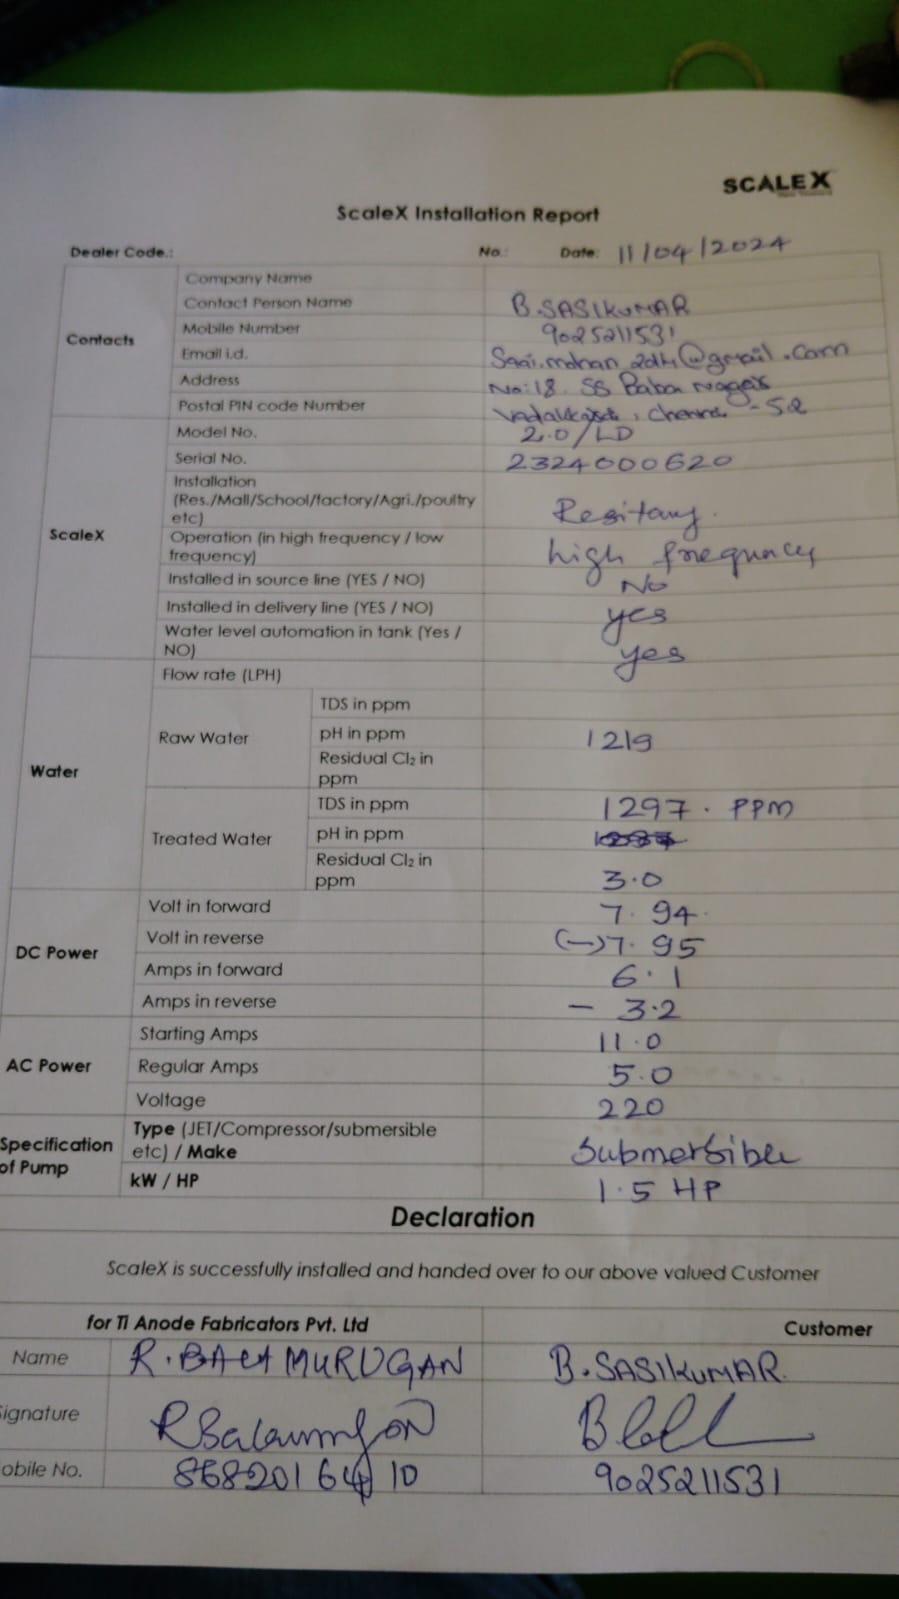 SCALEX
ScaleX Installation Report
Dealer Code.: No.: Date: 11/04/2024
Contacts
Company Name
Contact Person Name B.SASIKUMAR
Mobile Number 9025211531
Email i.d. @gmail.com
Address No:18. SS Baba Nagar
Postal PIN code Number - 52
ScaleX
Model No. 2.0/LD
Serial No. 2324000620
Installation
(Res./Mall/School/factory/Agri./poultry
etc)
Operation (in high frequency / low high
frequency)
Installed in source line (YES / NO) No
Installed in delivery line (YES / NO) yes
Water level automation in tank (Yes / yes
NO)
Water
Flow rate (LPH)
Raw Water
TDS in ppm
pH in ppm 1219
Residual Cl₂ in
ppm
Treated Water
TDS in ppm 1297. PPM
pH in ppm
Residual Cl₂ in
ppm 3.0
DC Power
Volt in forward 7.94.
Volt in reverse (-)7.95
Amps in forward 6.1
Amps in reverse - 3.2
AC Power
Starting Amps 11.0
Regular Amps 5.0
Voltage 220
Specification
of Pump
Type (JET/Compressor/submersible
etc) / Make
kW / HP 1.5 HP
Declaration
ScaleX is successfully installed and handed over to our above valued Customer
for Ti Anode Fabricators Pvt. Ltd Customer
Name R.BALAMURUGAN B.SASIKUMAR.
Signature
Mobile No. 9025211531